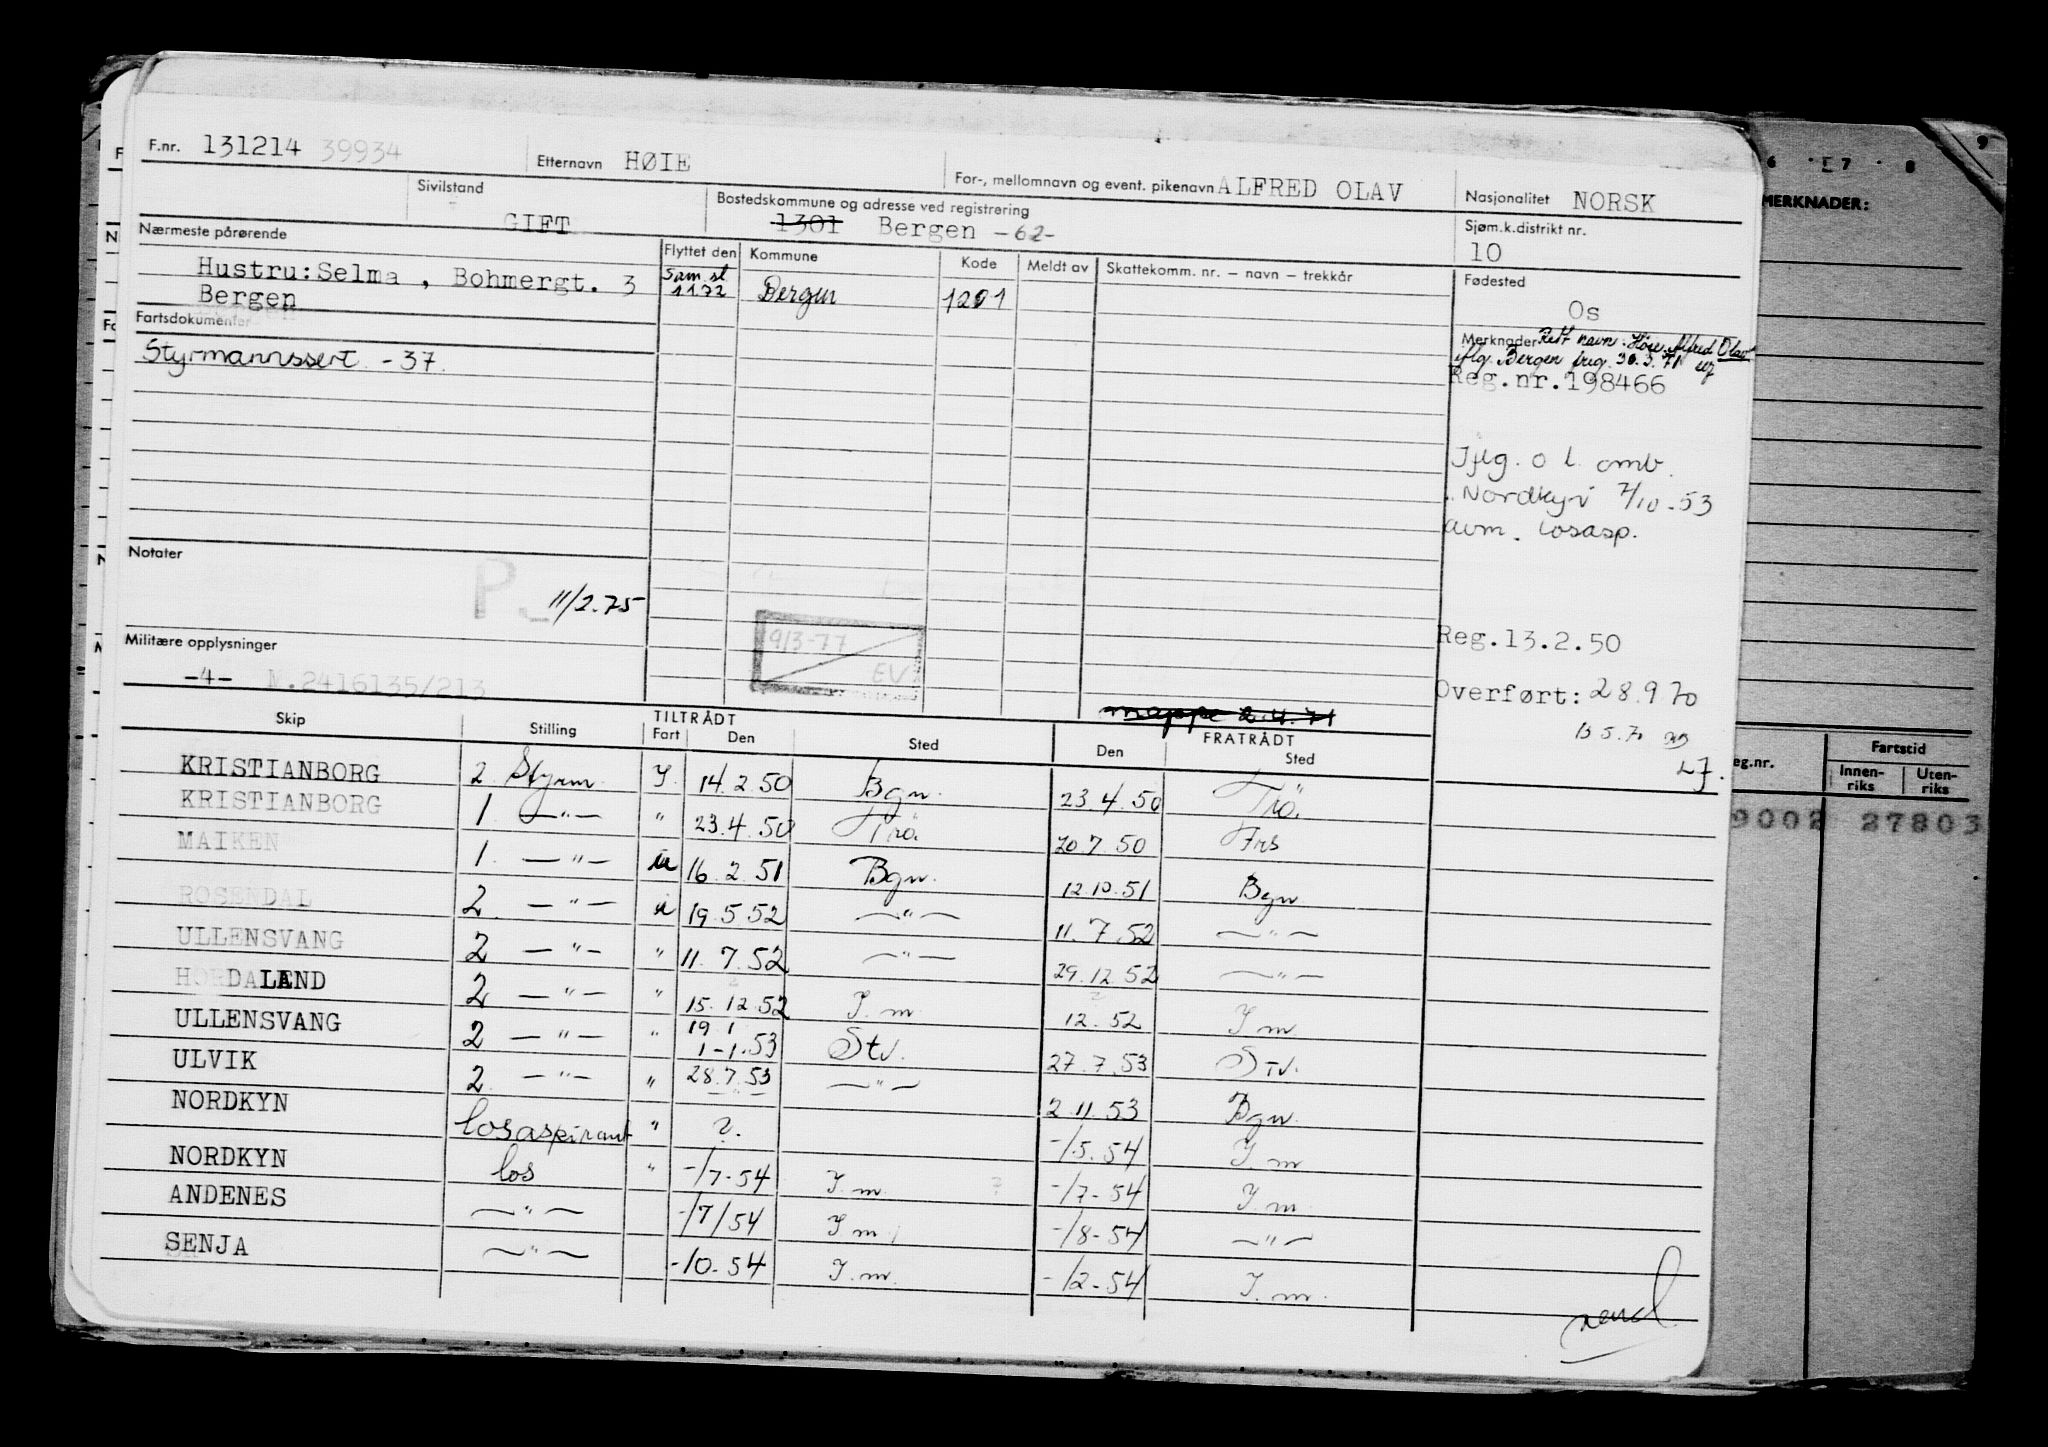 F.nr. 131214 39934 Etternavn HØIE For-, mellomnavn og event. pikenavn ALFRED OLAV Nasjonalitet NORSK
Sivilstand GIFT Bostedskommune og adresse ved registrering 1301 Bergen -62- Sjøm.k.distrikt nr. 10
Nærmeste pårørende Flyttet den Kommune Kode Meldt av Skattekomm. nr. – navn – trekkår Fødested
Hustru:Selma , Bohmergt. 3 Sam.st 1172 Bergen 1201 Os
Bergen
Fartsdokumenter
Styrmannssert. -37.
Merknader Rett navn: Alfred Olav
iflg. Bergen freg. 30.3.71
Reg.nr.198466
Iflg. o l. omb.
Nordkyn 7/10-53
avm. losasp.
Notater
P. 11/2.75
9/3-77
EV
Reg.13.2.50
Militære opplysninger
-4- M.2416135/213
Overført: 28.9.70
mappe 2.4.71
13.5.70
LJ.
Skip Stilling TILTRÅDT Fart Den Sted FRATRÅDT Den Sted
KRISTIANBORG 2. Styrm. J. 14.2.50 Bgn. 23.4.50 Trö.
KRISTIANBORG 1. —"— " 23.4.50 Trö. 20.7.50 Frs
MAIKEN 1. —"— u 16.2.51 Bgn. 12.10.51 Bgn
ROSENDAL 2 —"— u 19.5.52 —"— 11.7.52 —"—
ULLENSVANG 2 —"— " 11.7.52 —"— 29.12.52 —"—
HORDALAND 2 —"— " 15.12.52 J.m. 12.52 J.m.
ULLENSVANG 2 —"— " 19.1 1-1.53 Stv. 27.7.53 Stv.
ULVIK 2. —"— " 28.7.53 —"— 2.11.53 Bgn.
NORDKYN losaspirant " ?. -/5.54 J.m
NORDKYN los " -/7-54 J.m. ? -/7-54 J.m.
ANDENES —"— -/7/54 J.m. -/8-54 —"—
SENJA —"— -/10-54 J.m. -/2-54 J.m.
vend
6 7 8 9
MERKNADER:
eg.nr. Fartstid
Innen-riks Uten-riks
9002 27803